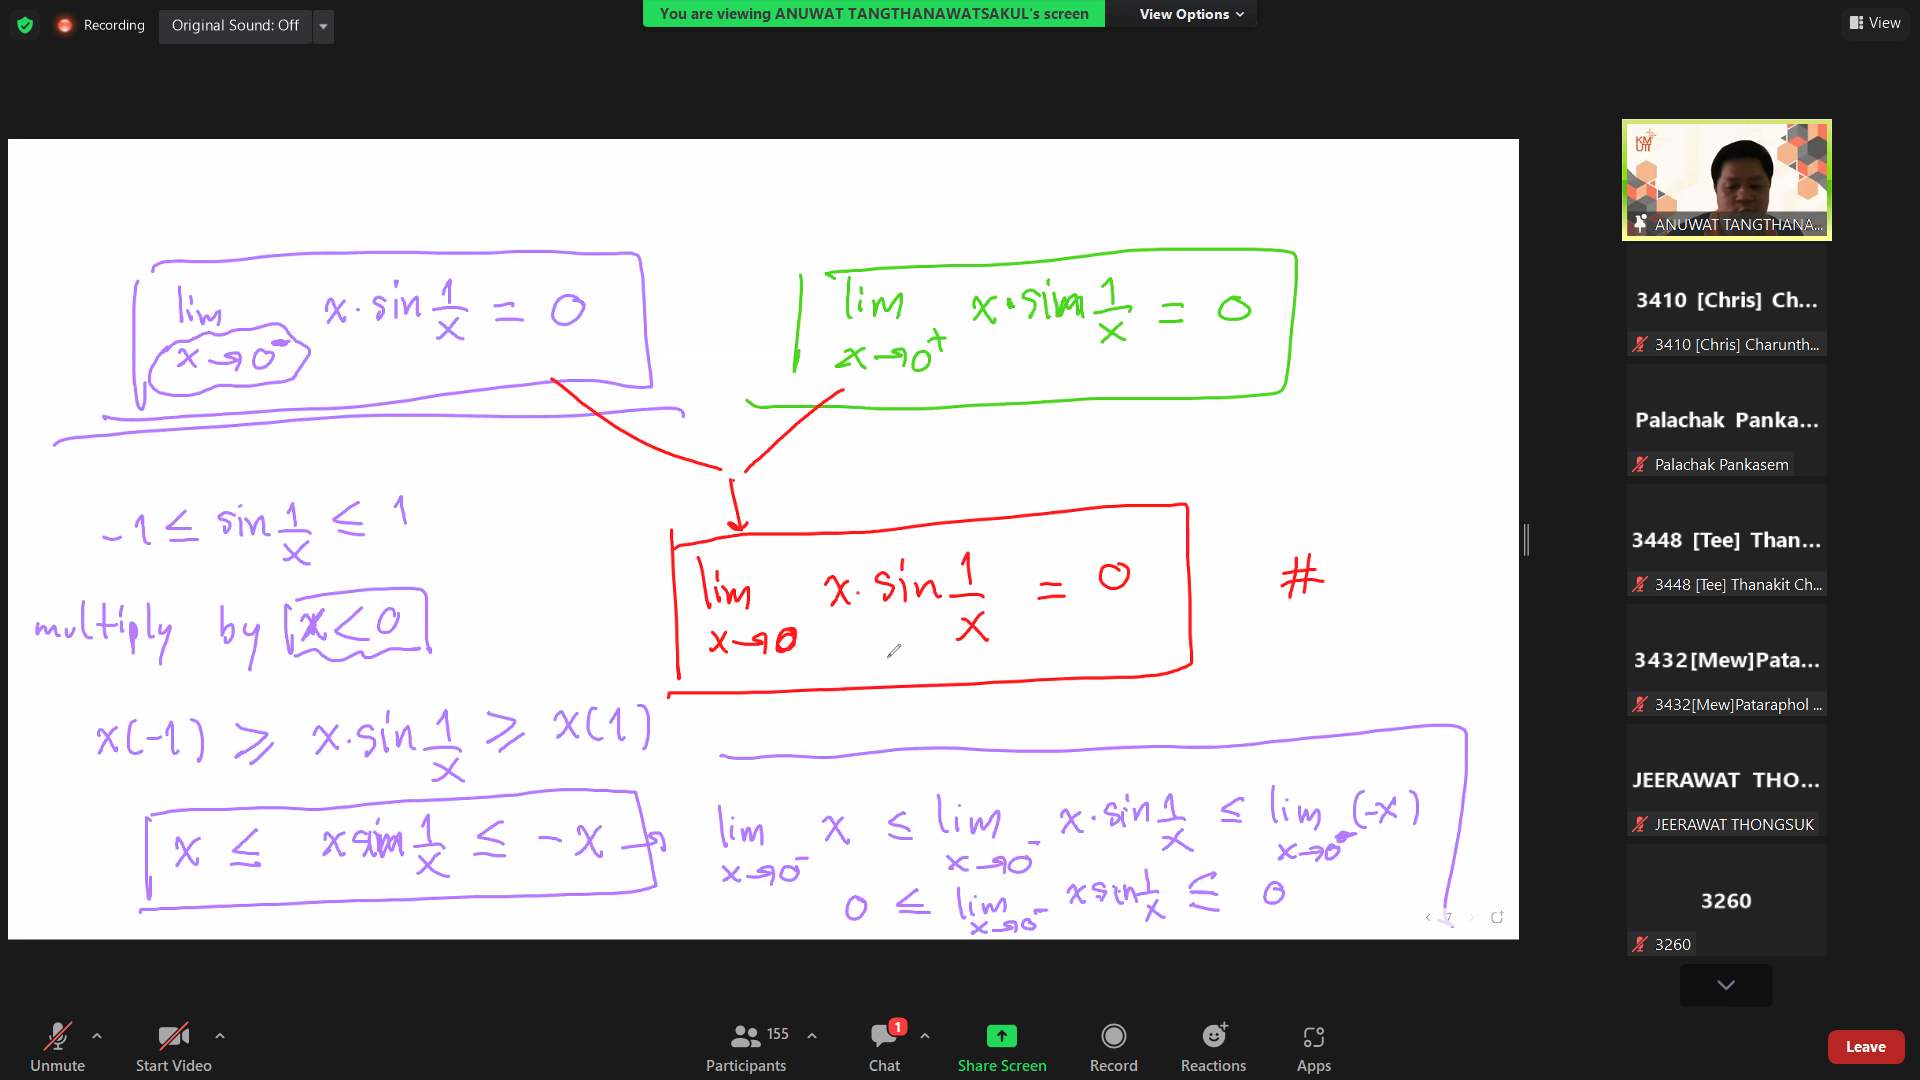 Recording
Original Sound: Off
You are viewing ANUWAT TANGTHANAWATSAKUL's screen
View Options
View
lim x→0⁻ x·sin 1/x = 0
lim x→0⁺ x·sin 1/x = 0
-1 ≤ sin 1/x ≤ 1
multiply by x<0
x(-1) ≥ x·sin 1/x ≥ x(1)
x ≤ x sin 1/x ≤ -x →
lim x→0 x·sin 1/x = 0 #
lim x→0⁻ x ≤ lim x→0⁻ x·sin 1/x ≤ lim x→0⁻ (-x)
0 ≤ lim x→0⁻ x sin 1/x ≤ 0
7
KM
UTT
ANUWAT TANGTHANA...
3410 [Chris] Ch...
3410 [Chris] Charunth...
Palachak Panka...
Palachak Pankasem
3448 [Tee] Than...
3448 [Tee] Thanakit Ch...
3432[Mew]Pata...
3432[Mew]Pataraphol ...
JEERAWAT THO...
JEERAWAT THONGSUK
3260
3260
Unmute
Start Video
155
Participants
1
Chat
Share Screen
Record
Reactions
Apps
Leave